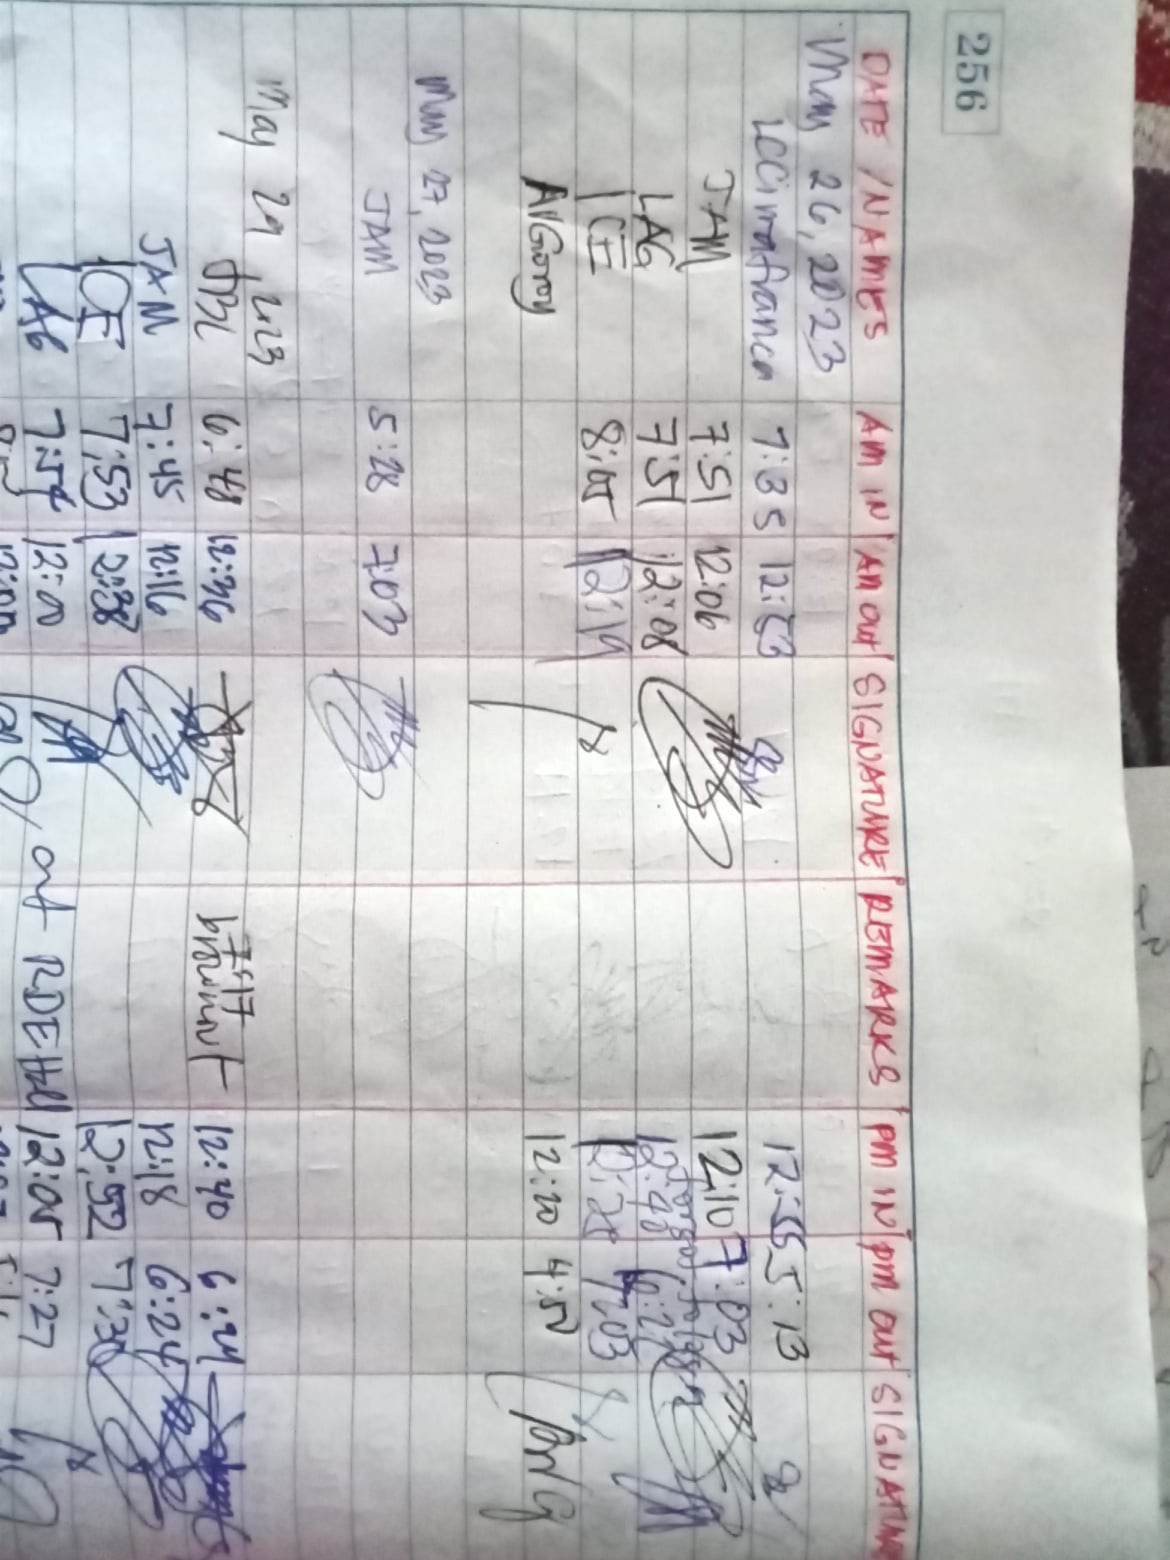 256
DATE / NAMES AM IN AM OUT SIGNATURE REMARKS PM IN PM OUT SIGNATURE
May 26, 2023
LCCimafranca 7:35 12:53 12:55 5:13
JAM 7:51 12:06 12:10 7:03
LAG 7:51 12:08 forgot to log in
ICE 8:05 12:19 12:28 7:03
ANGoroy 12:20 4:50
May 27, 2023
JAM 5:28 7:03
May 29, 2023
6:48 12:36 7:17 brownout 12:40
JAM 7:45 12:16 12:18 6:24
ICE 7:53 12:38 12:52 7:30
LAG 7:54 12:00 out RDEHU 12:05 7:27